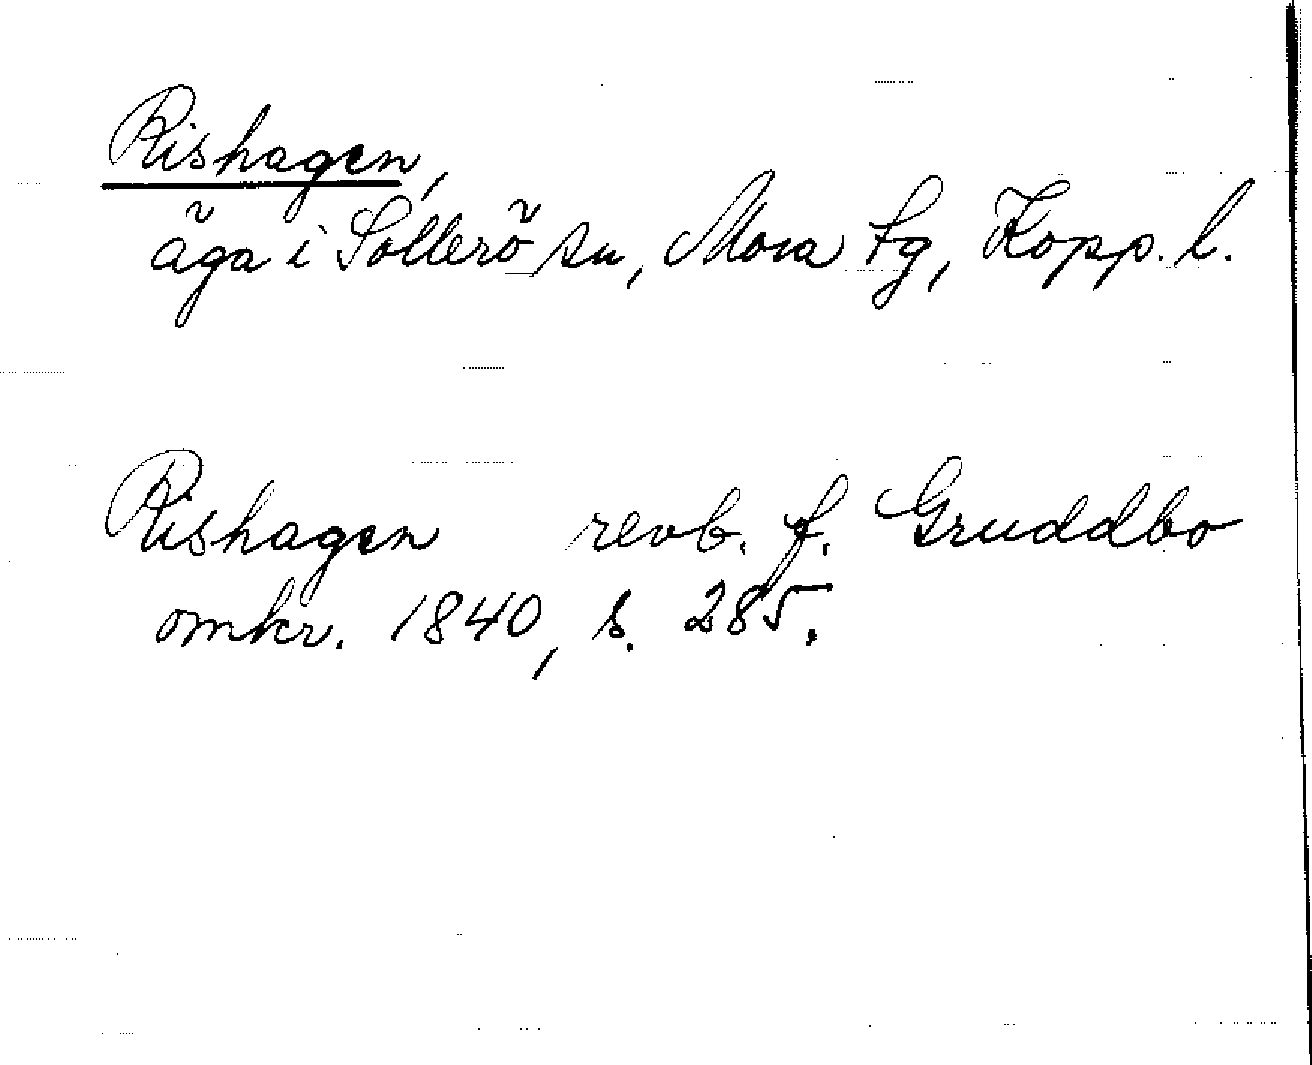 Rishagen,
äga i Sollerö sn, Mora fg, Kopp. l.
Rishagen revb. f. Gruddbo
omkr. 1840, s. 285.